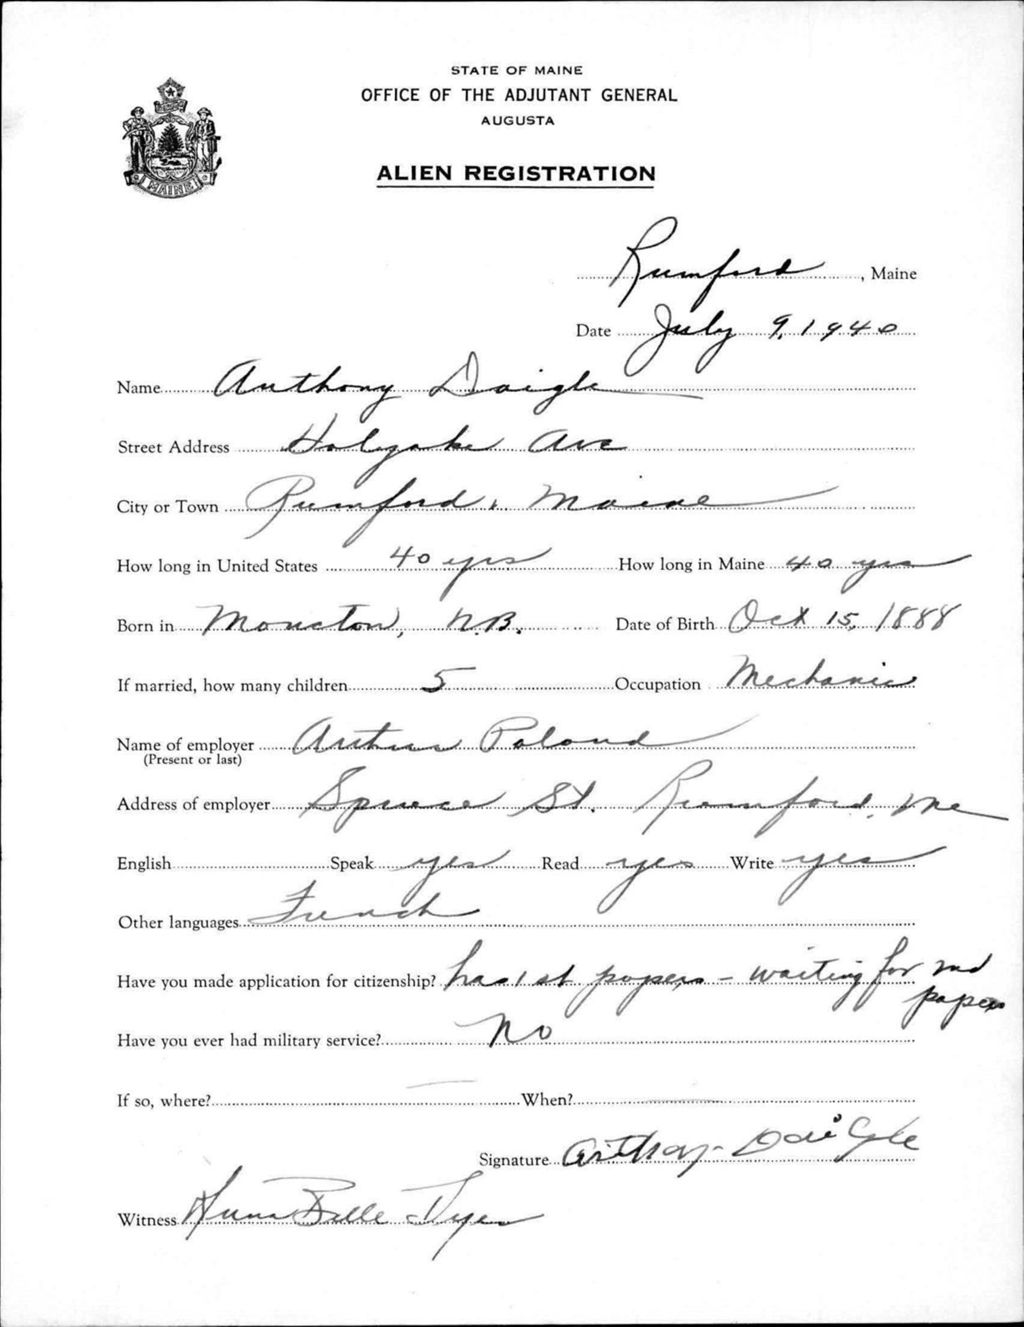 STATE OF MAINE
OFFICE OF THE ADJUTANT GENERAL
AUGUSTA
ALIEN REGISTRATION
MAINE
Rumford, Maine
Date July 9, 1940
Name Anthony Daigle
Street Address Holyoke Ave
City or Town Rumford, Maine
How long in United States 40 yrs How long in Maine 40 yrs
Born in Moncton, N.B. Date of Birth Oct 15, 1888
If married, how many children 5 Occupation Mechanic
Name of employer Arthur Poland
(Present or last)
Address of employer Spruce St. Rumford, Me
English Speak yes Read yes Write yes
Other languages French
Have you made application for citizenship? has 1st papers – waiting for 2nd
papers
Have you ever had military service? No
If so, where? — When? —
Signature Anthony Daigle
Witness Anna Belle Dyer